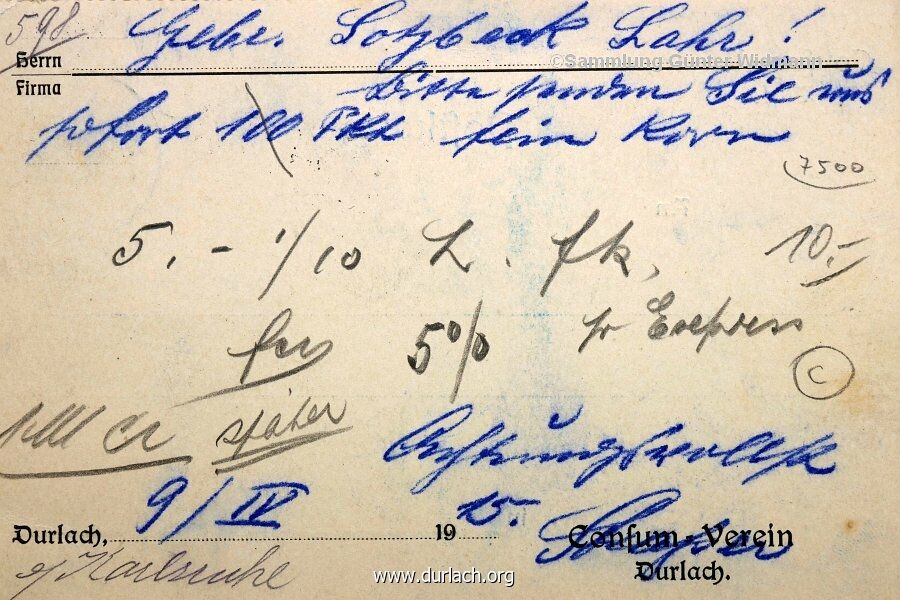 598 Gebr. Lotzbeck Lahr!
Herrn
©Sammlung Günter Widmann
Firma
Bitte senden Sie uns
sofort 100 Pkt fein Korn
7500
5.- 1/10 L. fk, 10.-
fco 5% pr Express
C
später
Achtungsvollst
Durlach, 9/IV 1915. Consum-Verein
Durlach.
Karlsruhe
www.durlach.org